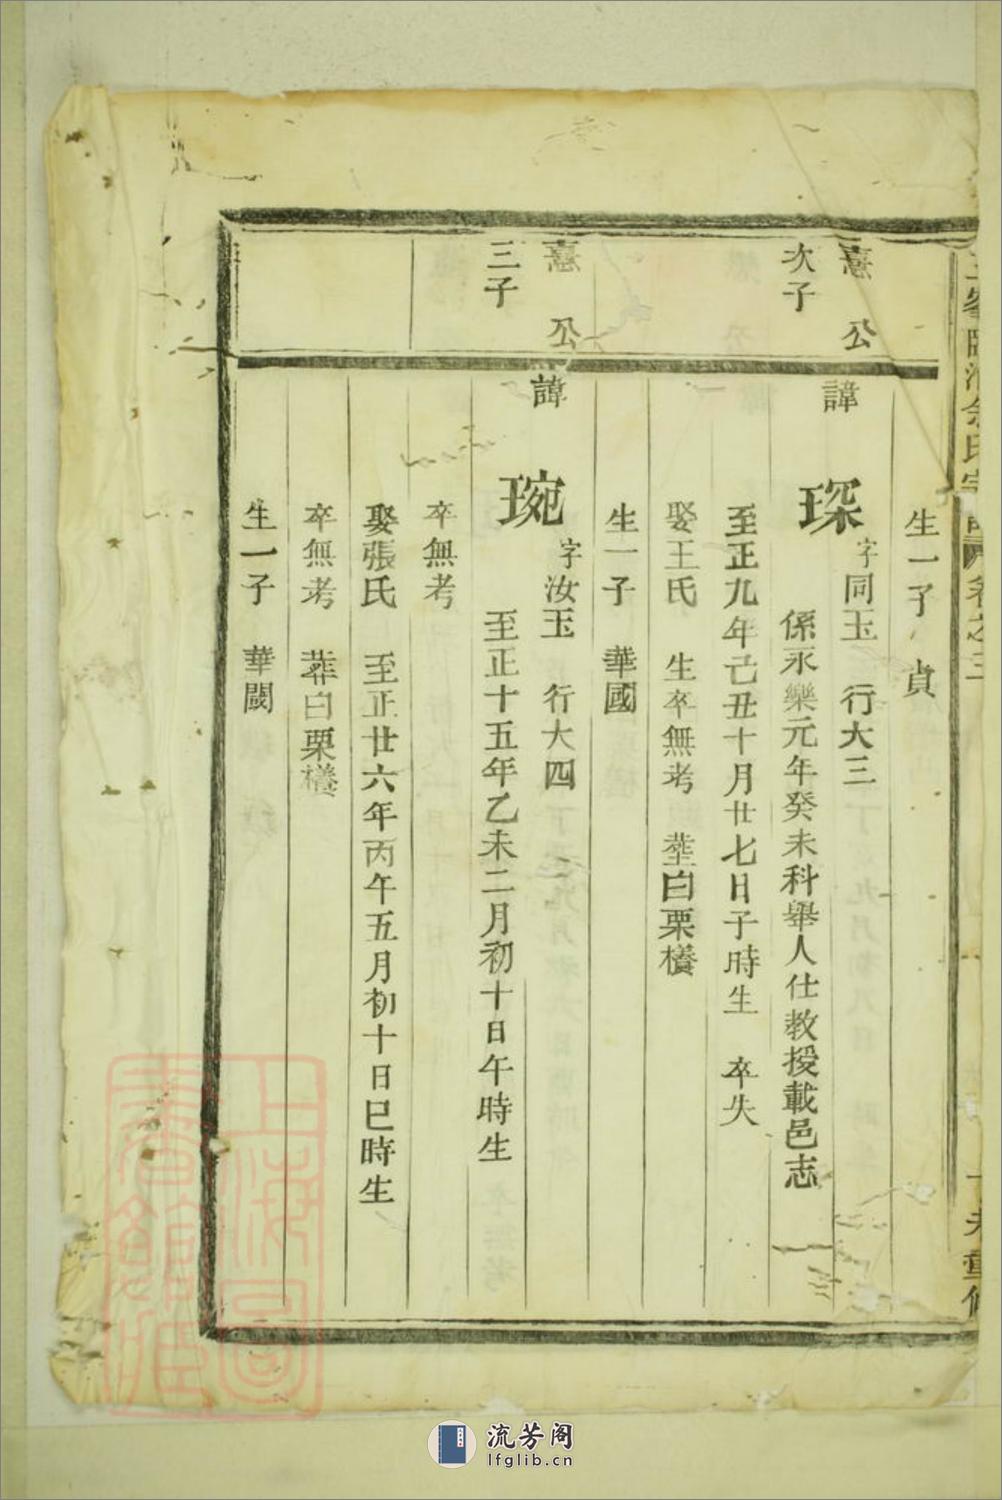 生一子 貞
憙公
次子
諱 琛 字同玉 行大三
係永樂元年癸未科舉人仕教授載邑志
至正九年己丑十月廿七日子時生 卒失
娶王氏 生卒無考 塟白栗欉
生一子 華國
憙公
三子
諱 琬 字汝玉 行大四
至正十五年乙未二月初十日午時生
卒無考
娶張氏 至正廿六年丙午五月初十日巳時生
卒無考 葬白栗欉
生一子 華閾
上海圖書館藏
流芳阁
lfglib.cn